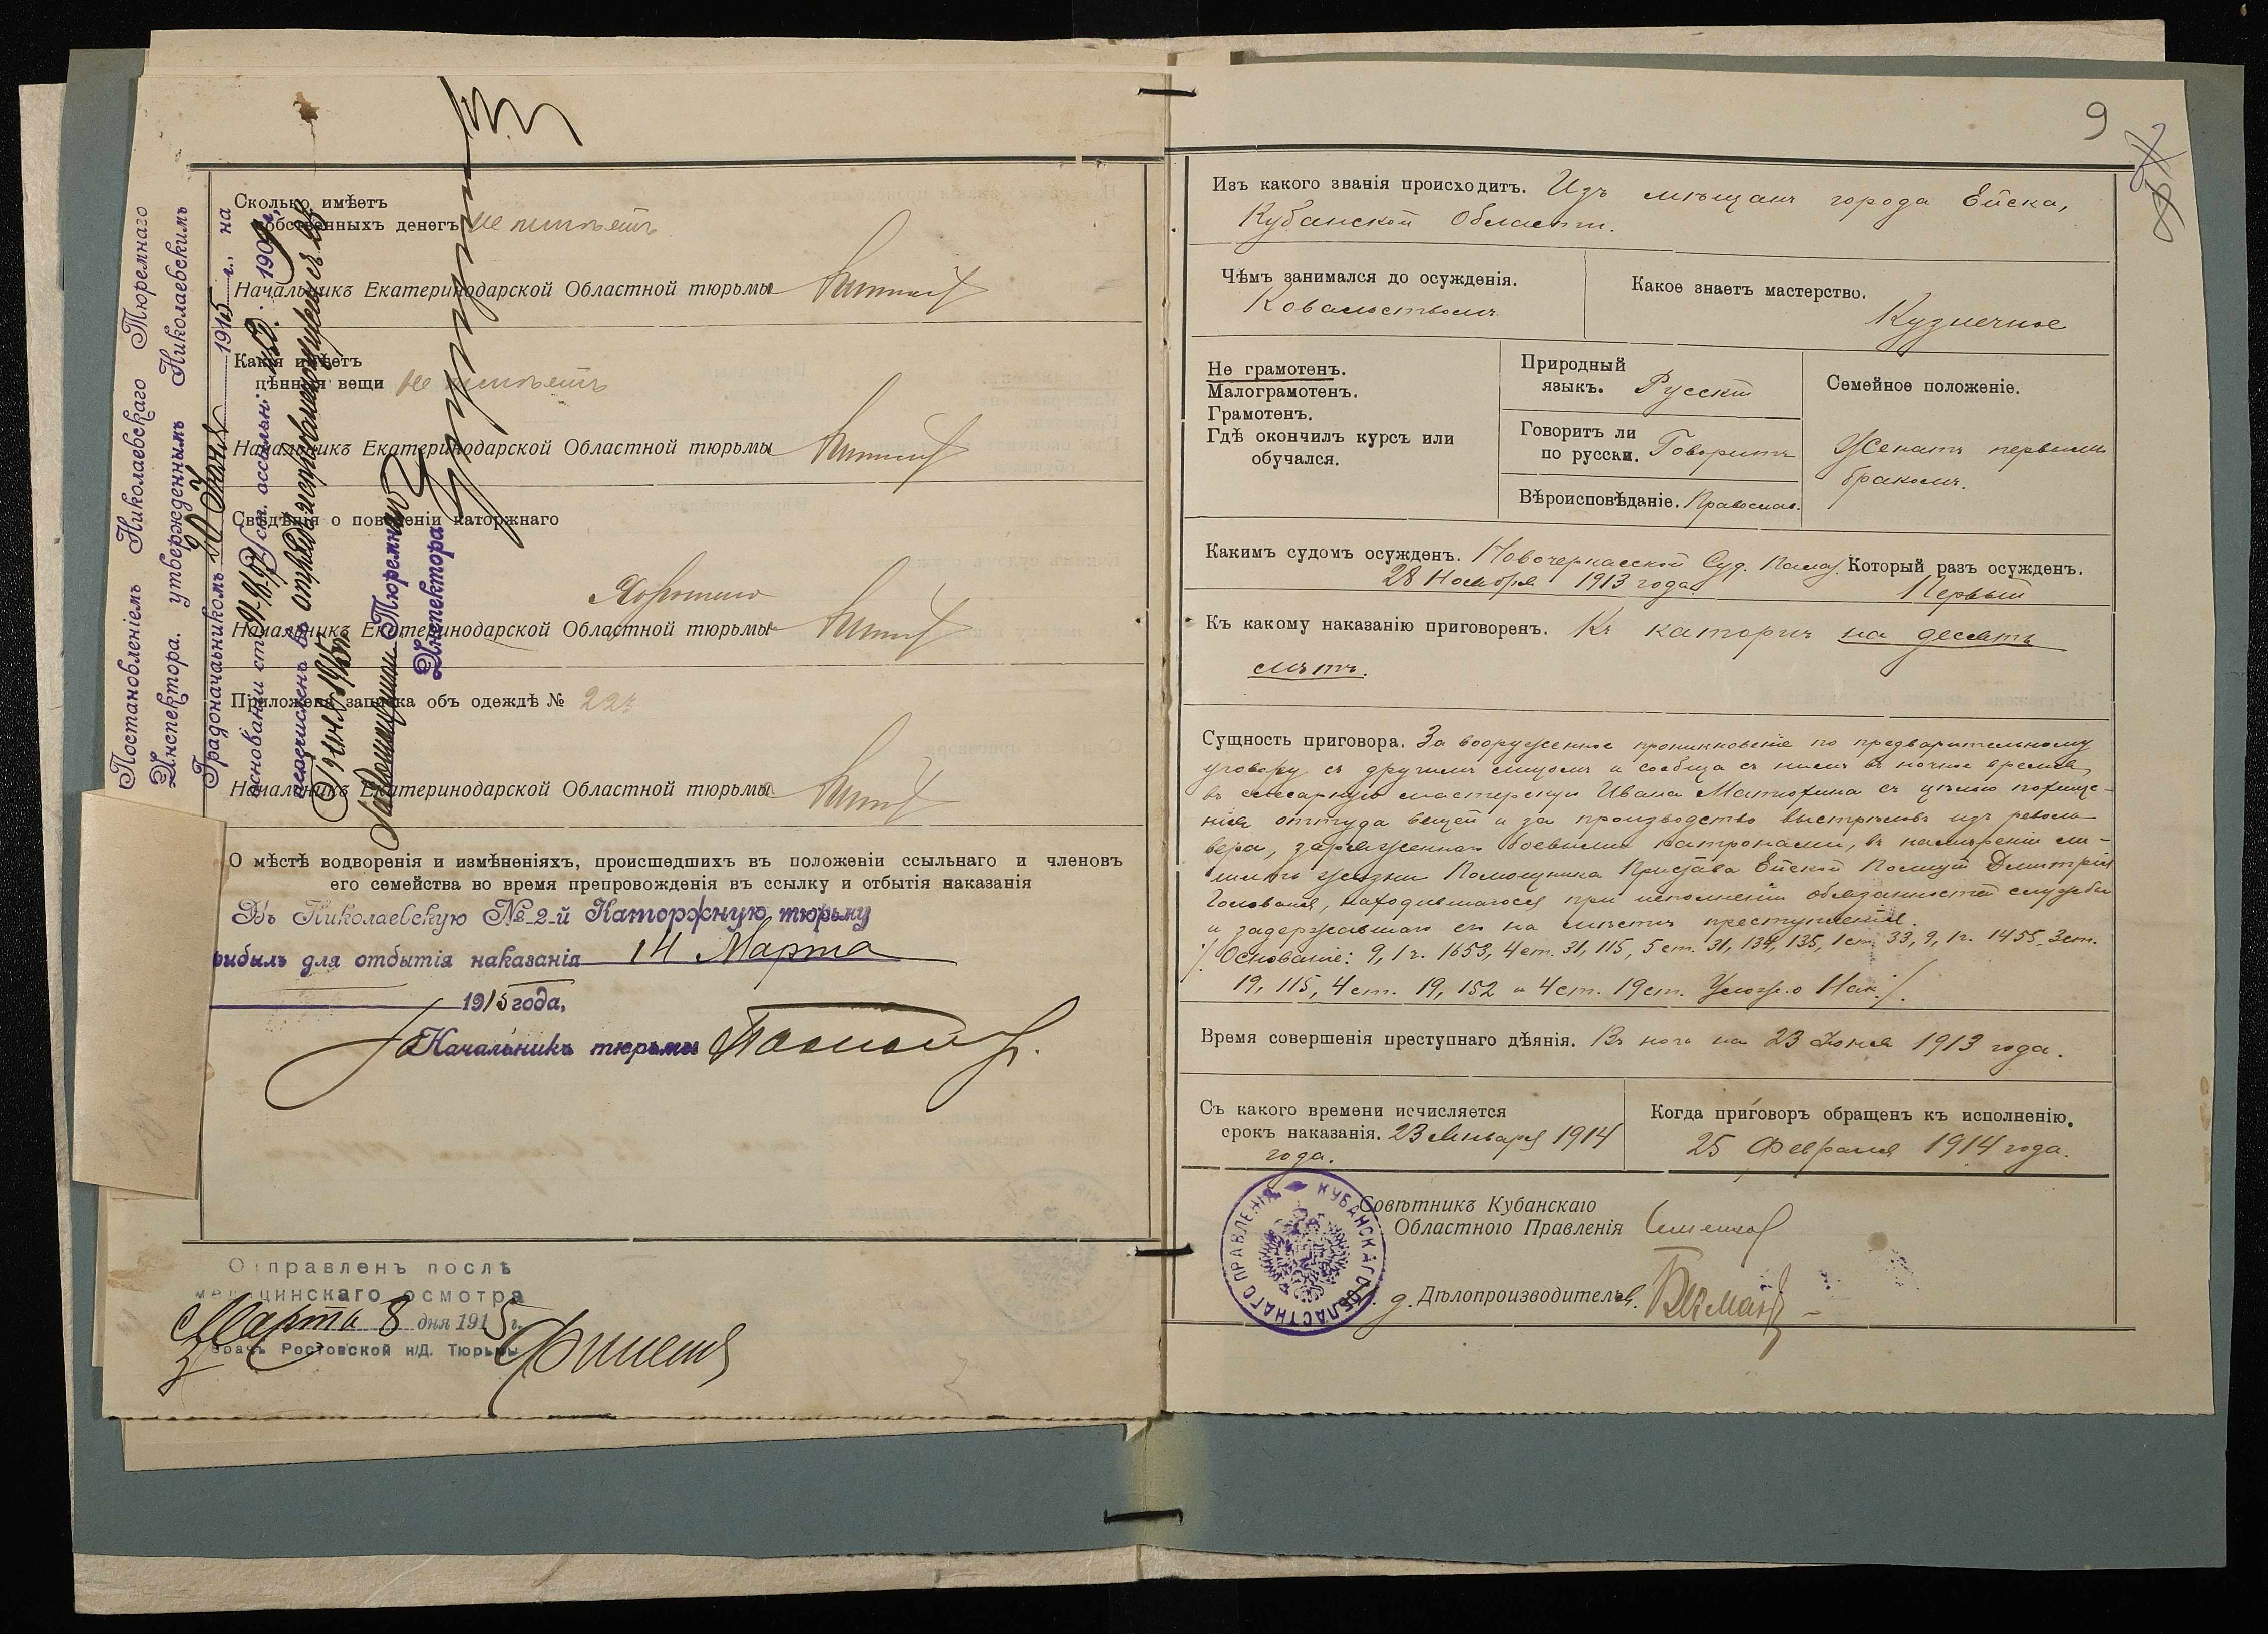 Сколько имѣетъ
собственныхъ денегъ не имѣетъ
Начальникъ Екатеринодарской Областной тюрьмы
Какія имѣетъ
цѣнныя вещи не имѣетъ
Начальникъ Екатеринодарской Областной тюрьмы
Свѣдѣнія о поведеніи каторжнаго
Хорошаго
Начальникъ Екатеринодарской Областной тюрьмы
Приложена записка объ одеждѣ №
Начальникъ Екатеринодарской Областной тюрьмы
О мѣстѣ водворенія и измѣненіяхъ, происшедшихъ въ положеніи ссыльнаго и членовъ
его семейства во время препровожденія въ ссылку и отбытія наказанія
Въ Николаевскую №-2-й Каторжную тюрьму
рибылъ для отбытія наказанія 14 Марта
1915 года,
Начальникъ тюрьмы
Отправленъ послѣ
медицинскаго осмотра
Марта 8 дня 1915 г.
Врачъ Ростовской н/Д. Тюрьмы
Постановленіемъ Николаевскаго Тюремнаго
Инспектора. утвержденнымъ Николаевскимъ
Градоначальникомъ 30 Іюня 1915 г., на
основаніи ст. Уст. о ссыльн. изд. 1909 г.
перечисленъ въ отрядъ исправляющихся съ
1915
Тюремнаго
Инспектора
9
Изъ какого званія происходитъ. Изъ мѣщанъ города Ейска,
Кубанской Области.
Чѣмъ занимался до осужденія.
Ковальствомъ
Какое знаетъ мастерство.
Кузнечное
Не грамотенъ.
Малограмотенъ.
Грамотенъ.
Гдѣ окончилъ курсъ или
обучался.
Природный
языкъ. Русскій
Говоритъ ли
по русски. Говоритъ
Вѣроисповѣданіе. Православ.
Семейное положеніе.
Женатъ первымъ
бракомъ.
Какимъ судомъ осужденъ. Новочеркасской Суд. Палат.
28 Ноября 1913 года.
Который разъ осужденъ.
Первый
Къ какому наказанію приговоренъ. Къ каторгѣ на десять
лѣтъ.
Сущность приговора. За вооруженное проникновеніе по предварительному
уговору съ другимъ лицомъ и сообща съ нимъ въ ночное время
въ слесарную мастерскую Ивана Матюхина съ цѣлью похище-
нія оттуда вещей и за производство выстрѣловъ изъ револь
вера, заряженнаго боевыми патронами, въ намѣреніи ли-
шить жизни Помощника Пристава Ейской Полиціи Дмитрія
Голованя, находившагося при исполненіи обязанностей службы
и задержавшаго его на мѣстѣ преступленія.
/Основаніе: 9, 1 ч. 1653, 4 ст. 31, 115, 5 ст. 31, 134, 135, 1 ст. 33, 9, 1 ч. 1455, 3 ст.
19, 115, 4 ст. 19, 152 и 4 ст. 19 ст. Улож. о Нак./.
Время совершенія преступнаго дѣянія. Въ ночь на 23 Іюня 1913 года.
Съ какого времени исчисляется
срокъ наказанія. 23 Января 1914
года.
Когда приговоръ обращенъ къ исполненію.
25 Февраля 1914 года.
Совѣтникъ Кубанскаго
Областного Правленія
д. Дѣлопроизводитель
КУБАНСКАГО ОБЛАСТНАГО ПРАВЛЕНІЯ